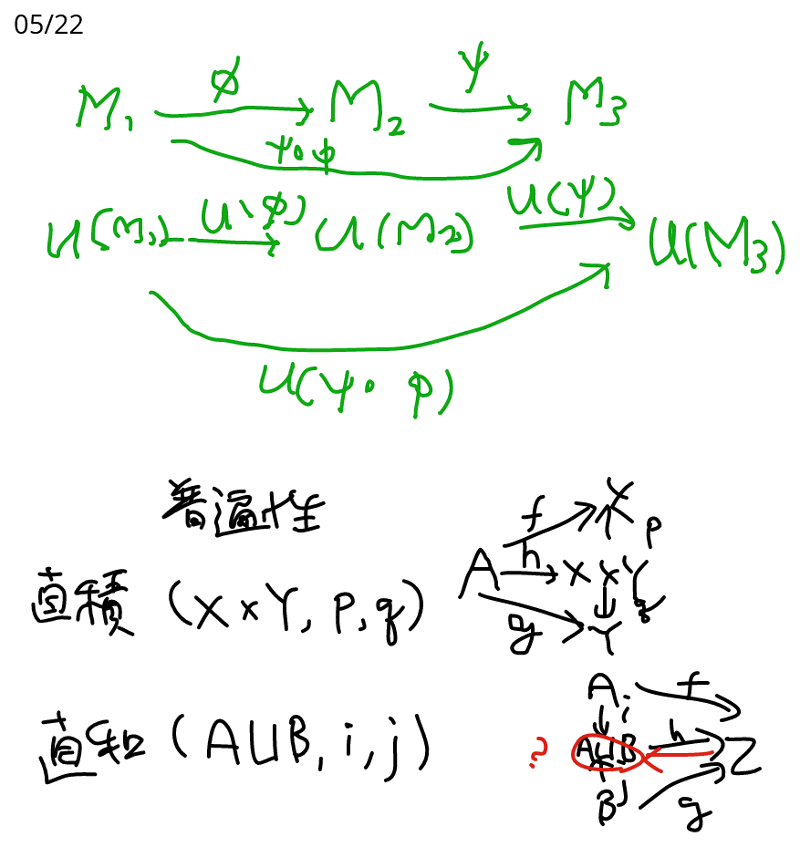 05/22
M₁ ϕ M₂ ψ M₃
ψ∘ϕ
U(M₁) U(ϕ) U(M₂) U(ψ) U(M₃)
U(ψ∘ϕ)
普遍性
直積 (X×Y, p, q)
A f X p
h X×Y
g Y q
直和 (A⊔B, i, j)
A i f
? A⊔B h Z
B j g